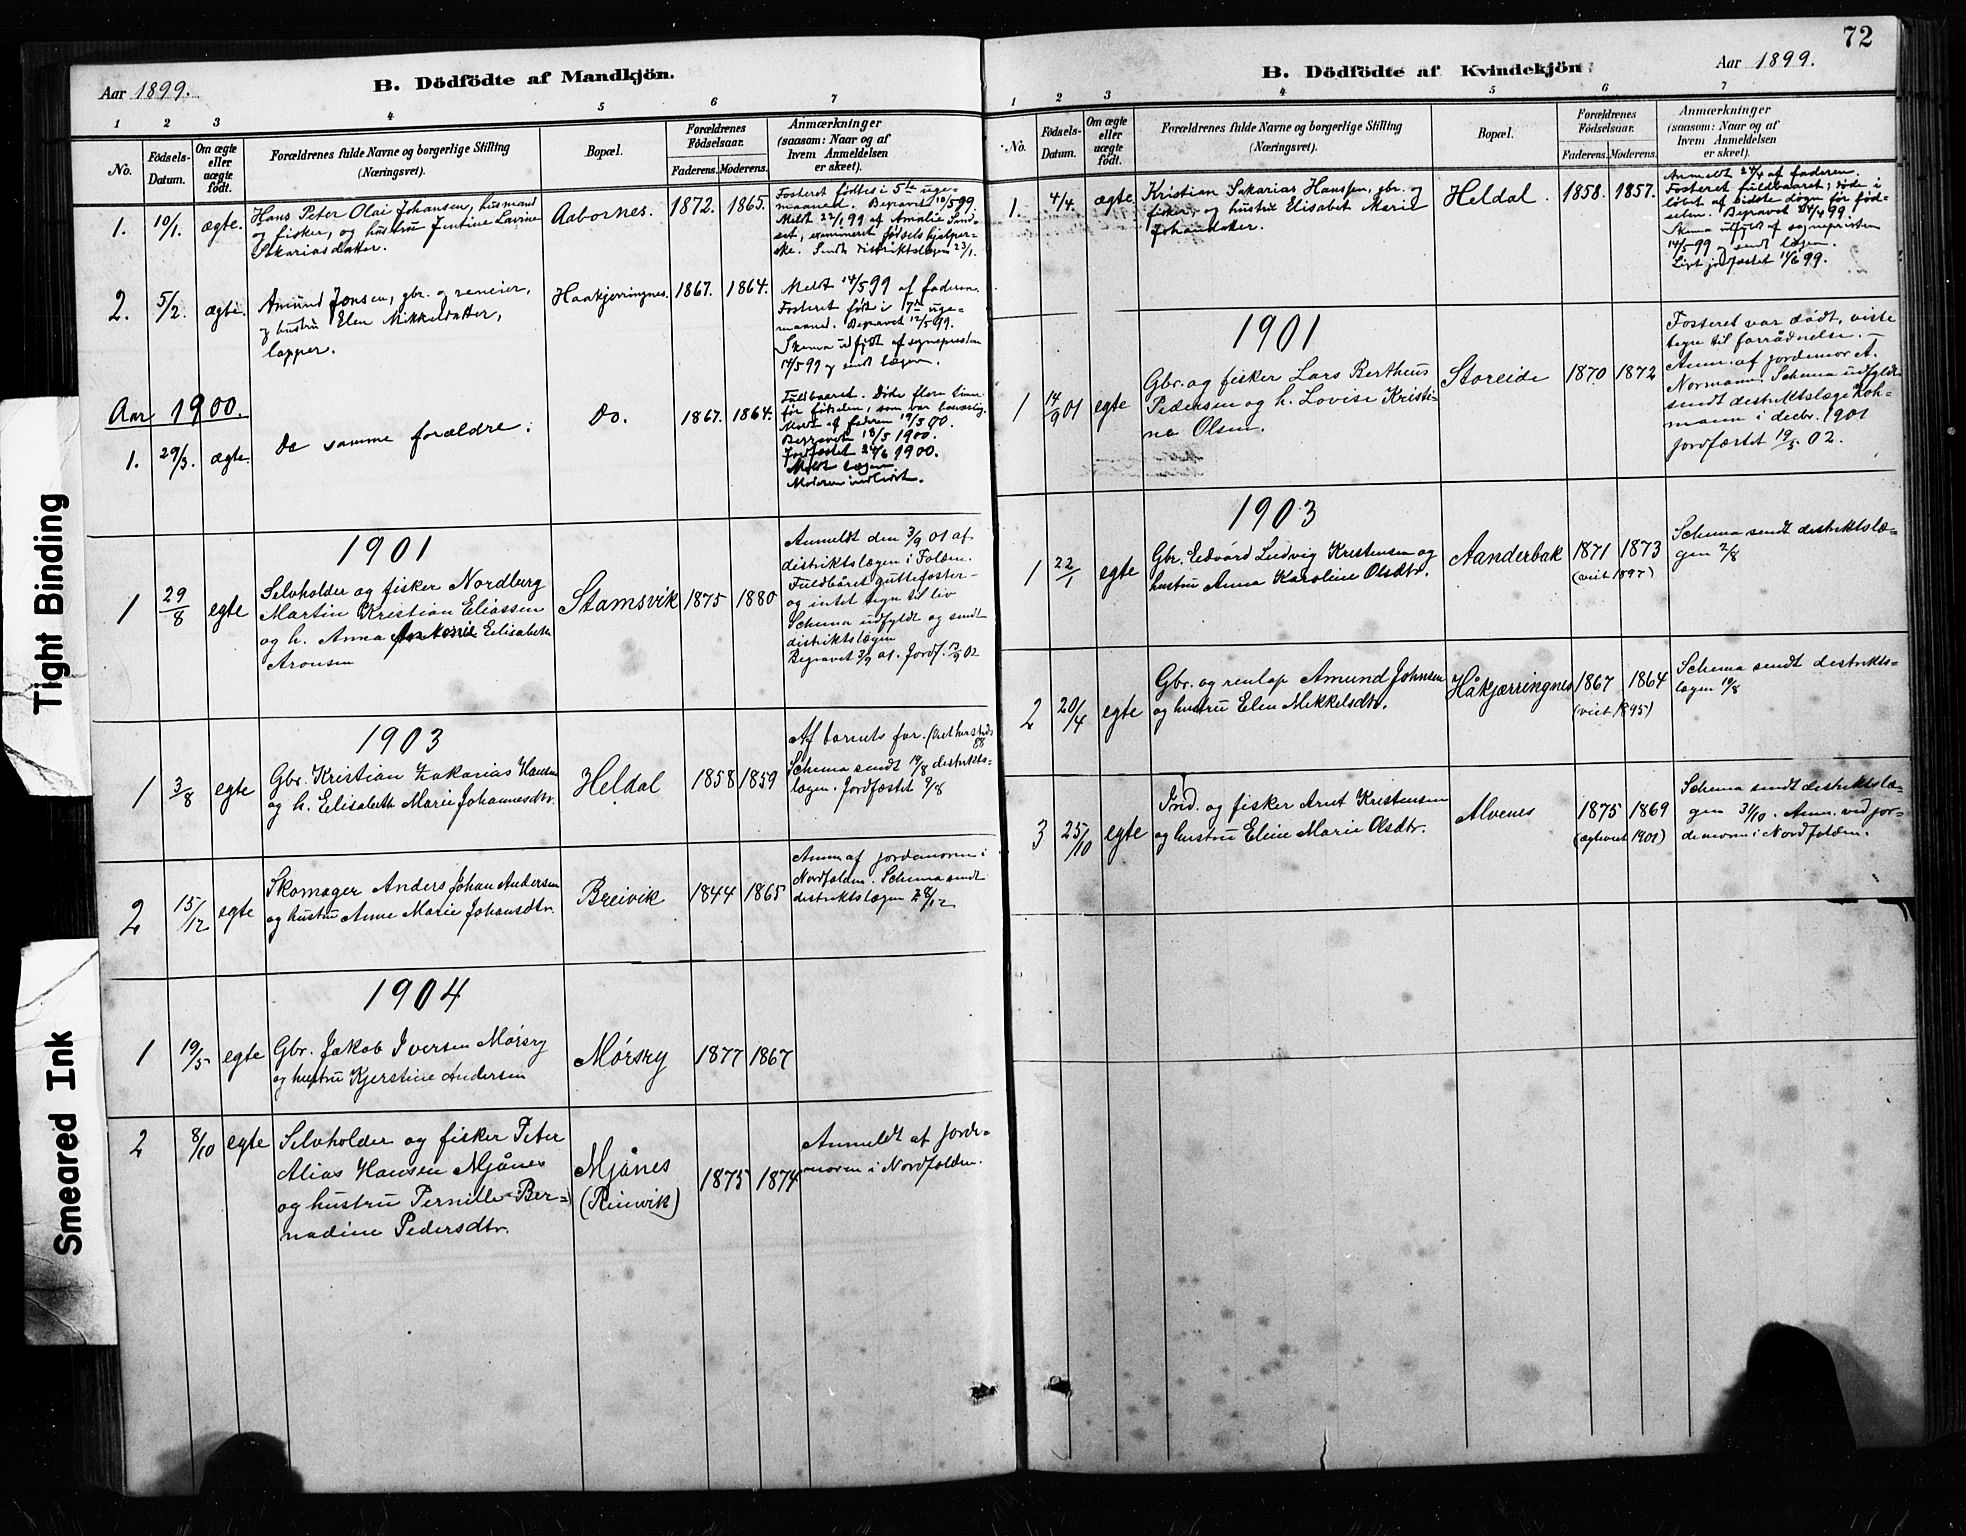 Aar 1899.
B. Dödfödte af Mandkjön.
1 2 3 4 5 6 7
No.
Födsels-
Datum.
Om ægte
eller
uægte
födt.
Forældrenes fulde Navne og borgerlige Stilling
(Næringsvei).
Bopæl.
Forældrenes
Födselsaar.
Faderens. Moderens.
Anmærkninger
(saasom: Naar og af
hvem Anmeldelsen
er skeet).
1. 10/1. ægte.
Hans Peter Olai Johansen, husmand
og fisker, og hustru Jentine Lavine
Sakariasdatter.
Aabornes. 1872. 1865.
Fosteret födtes i 5te uge-
maaned. Begravet 10/5 99.
Meldt 22/1 99 af Amalie Sand-
set, examineret födselshjælper-
ske. Sendt distriktslægen 23/1.
2. 5/2. ægte.
Amund Jonsen, gbr. og reneier,
og hustru Elen Mikkeldatter,
lapper.
Haakjerringnes. 1867. 1864.
Meldt 14/5 99 af faderen.
Fosteret födt i 7de uge-
maaned. Begravet 12/5 99.
Skema udfyldt af sognepresten
14/5 99 og sendt lægen.
Aar 1900.
1. 29/3. ægte.
De samme forældre.
Do. 1867. 1864.
Fuldbaaret. Döde flere timer
før fødselen, som var besværlig.
Meldt af faderen 19/5 00.
Begravet 18/5 1900.
Jordfæstet 24/6 1900.
Meldt lægen
Moderen
1901
1 29/8 egte
Selvholder og fisker Nordberg
Martin Kristian Eliassen
og h. Anna Antonie Elisabeth
Aronsen
Stamsvik 1875 1880
Anmeldt den 3/9 01 af
distriktslægen i Folden.
Fuldbåret guttefoster-
og intet tegn til liv
Schema udfyldt og sendt
distriktslægen
Begravet 3/9 01. Jordf. 02
1903
1 3/8 egte
Gbr. Kristian Zakarias Hansen
og h. Elisabeth Marie Johannesdtr.
Heldal 1858 1859
Af barnets far.
88
Schema sendt 19/8 distrikts-
lægen. Jordfæstet 9/8
2 15/12 egte
Skomager Anders Johan Andersen
og hustru Anne Marie Johansdtr.
Breivik 1844 1865
Anm. af jordemoren i
Nordfolden. Schema sendt
distriktslægen 28/12
1904
1 19/5 egte
Gbr. Jakob Iversen Mørsry
og hustru Kjerstine Andersen
Mørsry 1877 1867
2 8/10 egte
Selvholder og fisker Peter
Alias Hansen Mjånes
og hustru Pernille Ber-
nadine Pedersdtr.
Mjånes
(Reinvik)
1875 1874
Anmeldt af jorde-
moren i Nordfolden.
72
B. Dödfödte af Kvindekjön
Aar 1899.
1 2 3 4 5 6 7
No.
Födsels-
Datum.
Om ægte
eller
uægte
födt.
Forældrenes fulde Navne og borgerlige Stilling
(Næringsvei).
Bopæl.
Forældrenes
Födselsaar.
Faderens. Moderens.
Anmærkninger
(saasom: Naar og af
hvem Anmeldelsen
er skeet).
1. 4/4. ægte
Kristian Sakarias Hanssen, gbr. og
fisker, og hustru Elisabet Marie
Johansdatter.
Heldal. 1858. 1857.
Anmeldt 24/4 af faderen.
Fosteret fuldbaaret; døde i
löbet af sidste døgn før fød-
selen. Begravet 24/4 99.
Skema udfyldt af sognepresten
14/5 99 og sendt lægen.
Ligt jordfæstet 11/6 99.
1901
1 14/9 01 egte
Gbr. og fisker Lars Bertheus
Pedersen og h. Lovise Kristi-
ne Olsen.
Storeide 1870 1872
Fosteret var dødt, viste
tegn til forrådnelse. -
Anm. af jordemor A.
Normann. Schema udfyldt
sendt distriktslæge Koh-
mann i decbr. 1901
Jordfæstet 19/5 02.
1903
1 22/1 egte
Gbr. Edvard Ludvig Kristensen og
hustru Anna Karoline Olsdtr.
Aanderbak 1871 1873
(viet 1897)
Schema sendt distriktslæ-
gen 2/8
2 20/4 egte
Gbr. og renlap Amund Johnsen
og hustru Elen Mikkelsdtr.
Håkjærringnes 1867 1864
(viet 1895)
Schema sendt distrikts-
lægen 19/8
3 25/10 egte
Ind. og fisker Arnt Kristensen
og hustru Eline Marie Olsdtr.
Alvenes 1875 1869
(egteviet 1901)
Schema sendt distriktslæ-
gen 31/10. Anm. ved jor-
demoren i Nordfolden.
Tight Binding
Smeared Ink